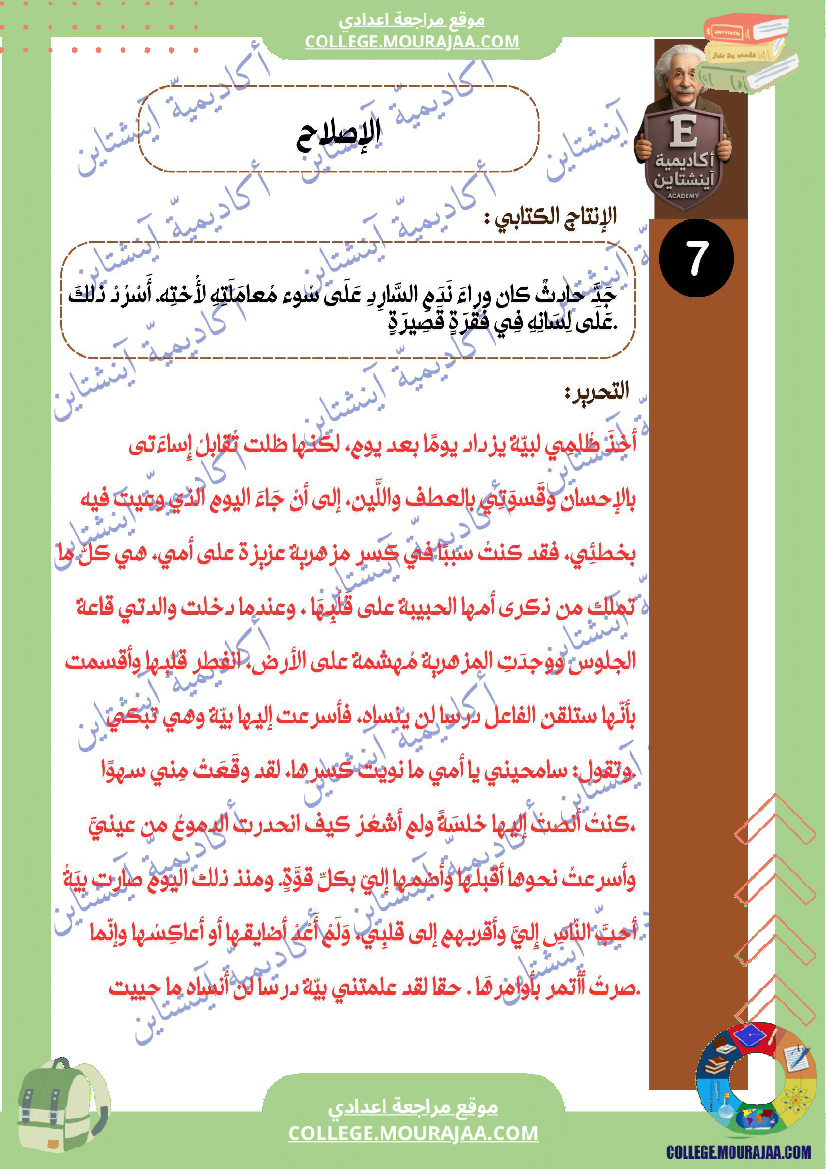 موقع مراجعة اعدادي
COLLEGE.MOURAJAA.COM
E
أكاديمية
آينشتاين
ACADEMY
الإصلاح
الإنتاج الكتابي :
7
جَدَّ حادثٌ كان وراءَ نَدَمِ السَّارِدِ عَلَى سُوء مُعامَلَتِهِ لأُختِه. أَسْرُدُ ذلكَ
عَلَى لِسَانِهِ فِي فَقْرَةٍ قَصِيرَةٍ.
التحرير:
أخذَ ظُلمِي لبيّة يزداد يومًا بعد يوم، لكنها ظلت تُقابلُ إِساءَتى
بالإحسان وقَسوَتِي بالعطف واللَّين، إلى أنْ جَاءَ اليوم الذي وعيت فيه
بخطئِي، فقد كنتُ سببًا في كسر مزهرية عزيزة على أمي، هي كلّ ما
تملك من ذكرى أمها الحبيبة على قَلْبِهَا ، وعندما دخلت والدتي قاعة
الجلوس ووجدَتِ المزهرية مُهشمة على الأرض، انفطر قلبها وأقسمت
بأنّها ستلقن الفاعل درسا لن ينساه، فأسرعت إليها بيّة وهي تبكي
وتقول: سامحيني يا أمي ما نويت كسرها، لقد وقَعَتْ مِني سهوًا.
كنتُ أنصتُ إليها خلسَةً ولم أشعُرْ كيف انحدرت الدموعُ من عينيَّ،
وأسرعتُ نحوها أقبلها وأضمها إليّ بكلّ قوَّةٍ. ومنذ ذلك اليوم صارت بيَةُ
أحبَّ النّاسِ إِليَّ وأقربهم إلى قلبِي، وَلَمْ أَعُدْ أضايقها أو أعاكِسُها وإنّما
صرتُ أأتمر بأوامرهَا . حقا لقد علمتني بيّة درسًا لن أنساه ما حييت.
أكاديميّة آينشتاين
موقع مراجعة اعدادي
COLLEGE.MOURAJAA.COM
COLLEGE.MOURAJAA.COM